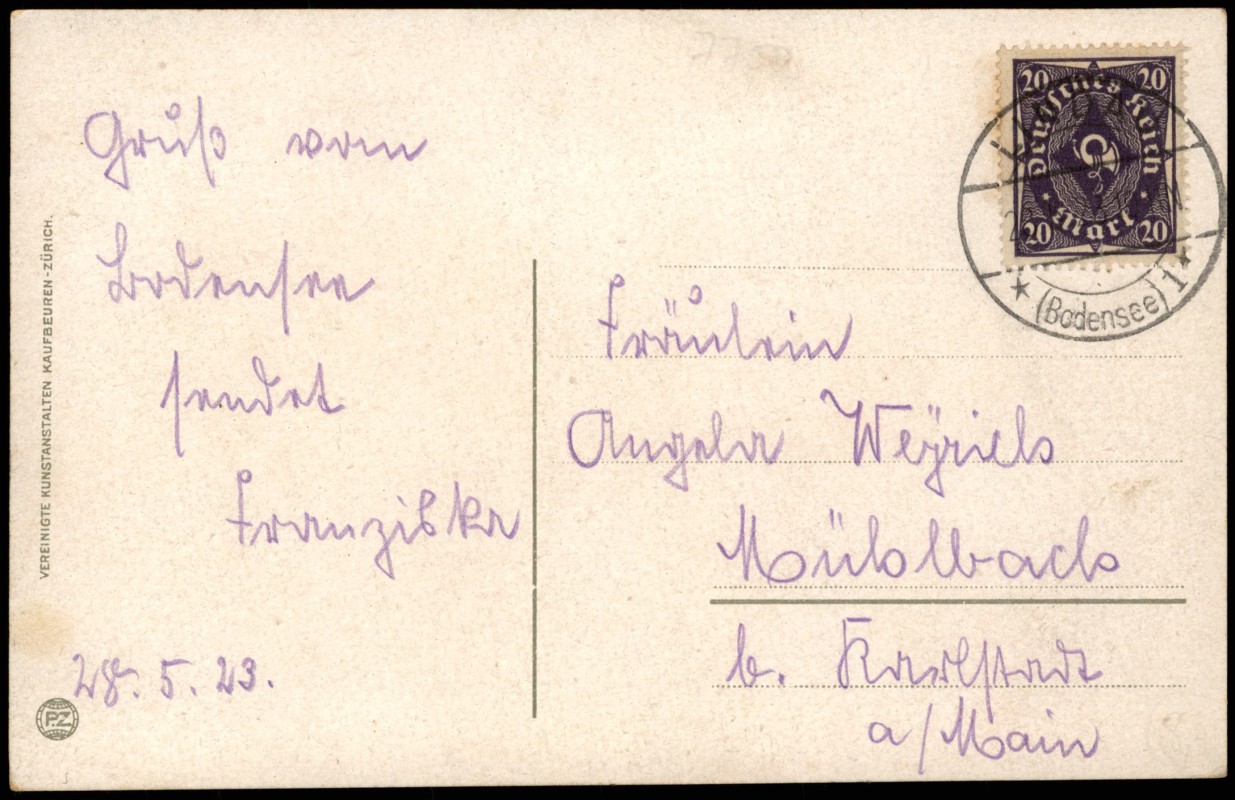 Gruß vom
Bodensee
sendet
Franziska
28. 5. 23.
VEREINIGTE KUNSTANSTALTEN KAUFBEUREN-ZÜRICH.
PZ
20 20
Deutsches Reich
Mark
20 20
(Bodensee) 1
Fräulein
Angela Weyrich
Mühlbach
b. Karlstadt
a/Main